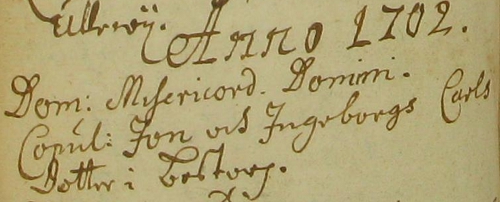 Ullerøÿ.
Anno 1702.
Dom: Misericord. Domini.
Copul: Jon och Ingeborgs Carls
Dotter i Bestorp.